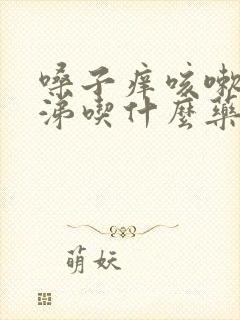 嗓子痒咳嗽
涕喫什麼藥
萌妖